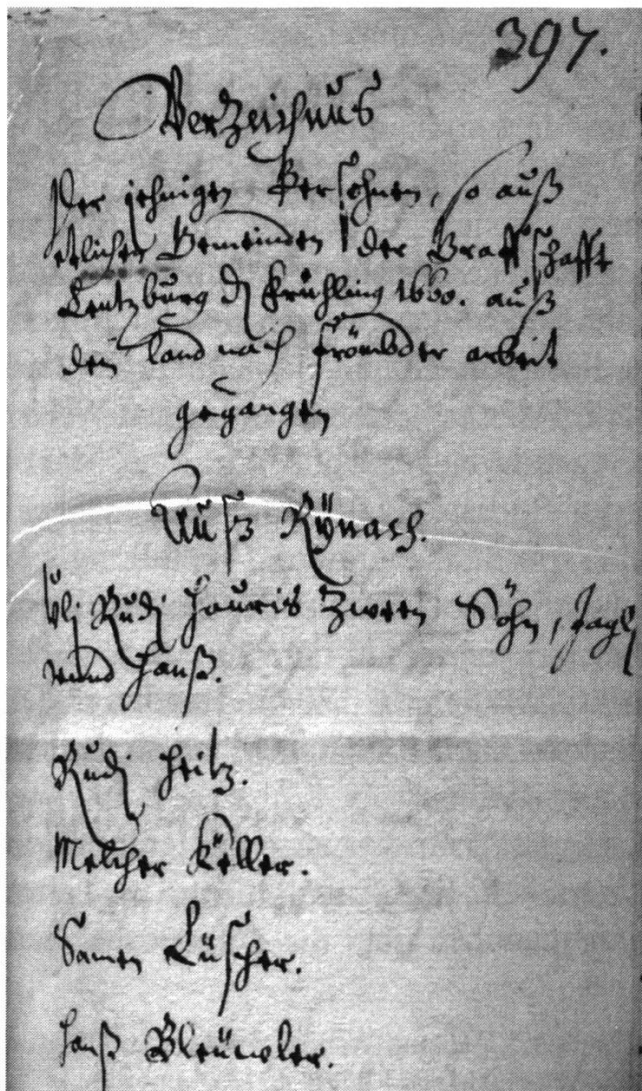 397.
Verzeichnus
Der jehnigen Persohnen, so auß
etlichen Gemeinden der Graffschafft
Lentzburg dß Früchling 1660. auß
dem land nach frömbder arbeit
gegangen
Auß Rÿnach.
Uli Rudj Hauris zween Söhn, Jagli
unnd Hanß.
Rudj Heitz.
Melcher Keller.
Samen Lüscher.
Hanß Bleüwler.